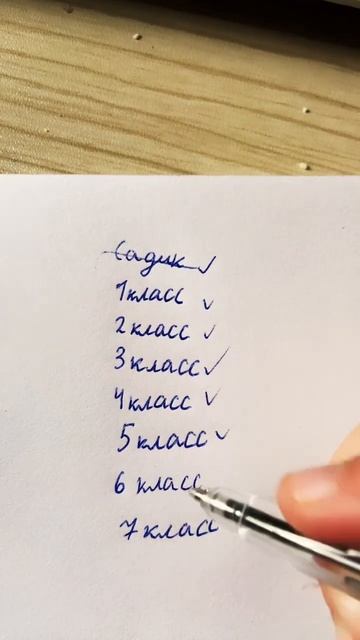 Садик ✓
1 класс ✓
2 класс ✓
3 класс ✓
4 класс ✓
5 класс ✓
6 класс
7 класс